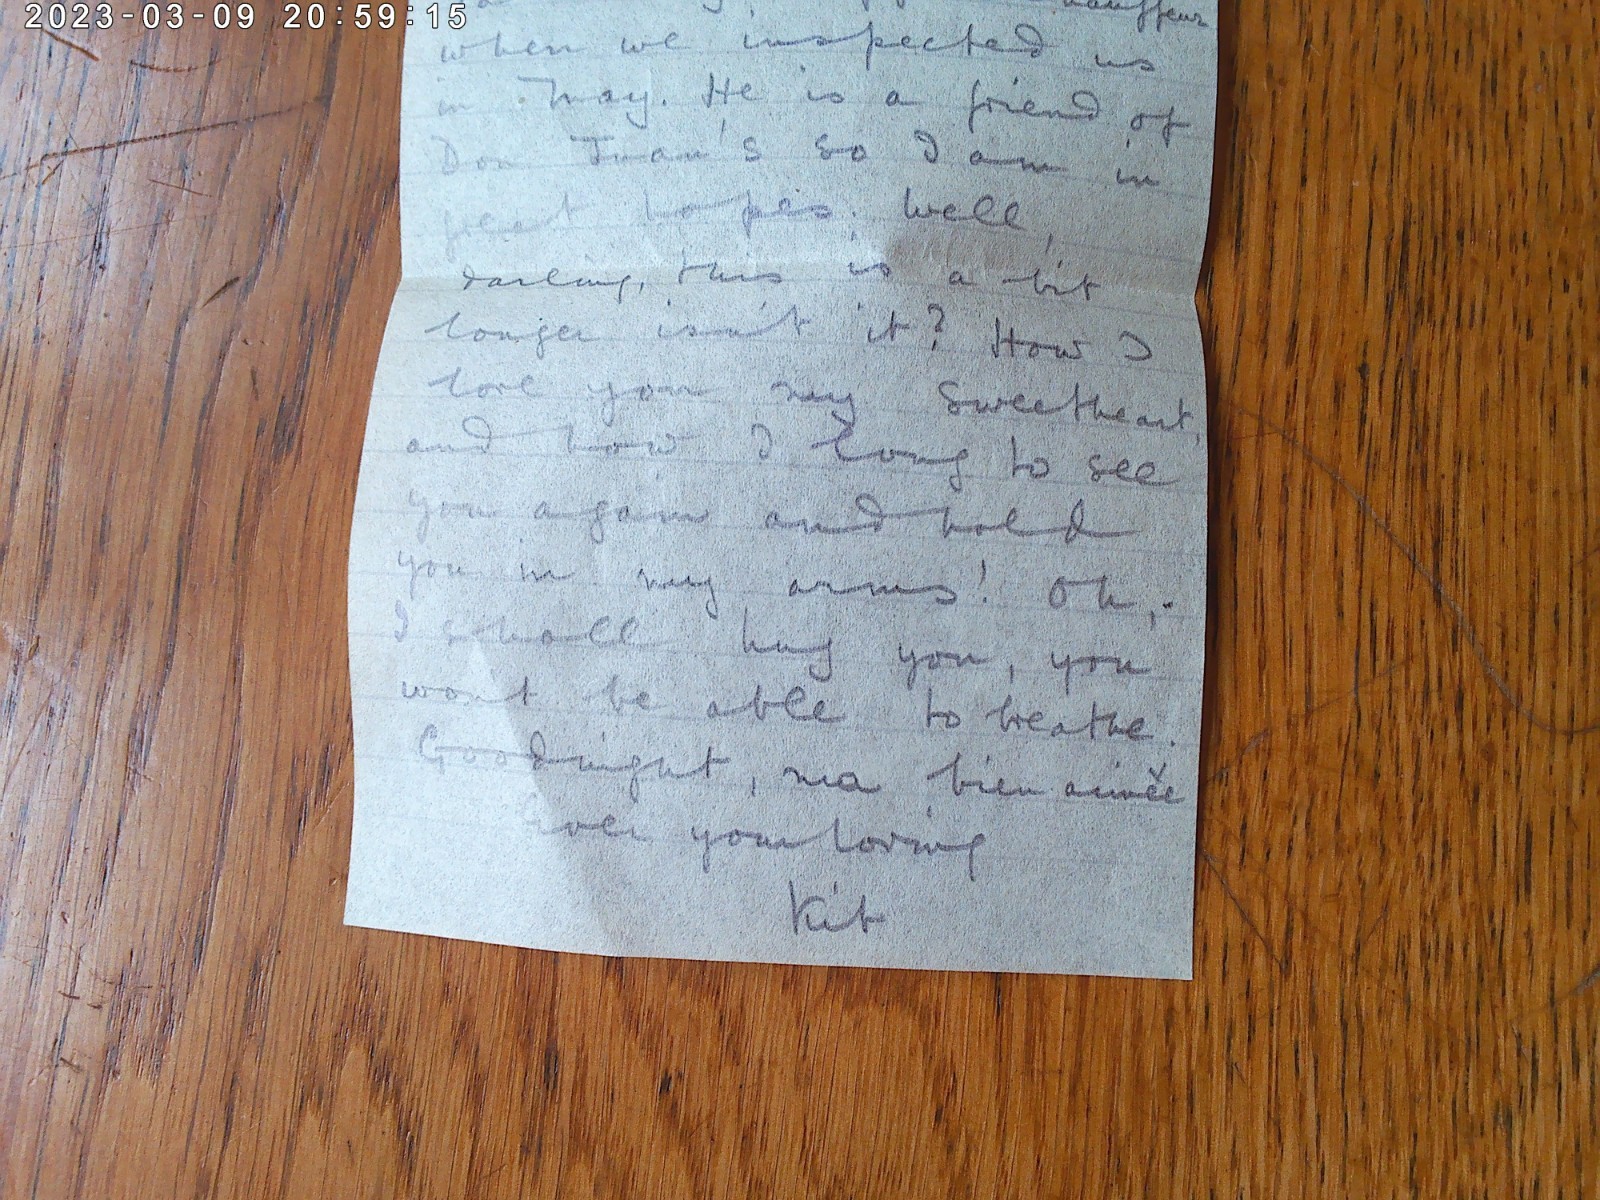 2023-03-09 20:59:15
chauffeur
when we inspected us
in May. He is a friend of
Don Juan's so I am in
great hopes. Well,
darling, this is a bit
longer isn't it? How I
love you my Sweetheart,
and how I long to see
you again and hold
you in my arms! Oh,
I shall hug you, you
won't be able to breathe.
Goodnight, ma bien aimée
Ever your loving
Kit